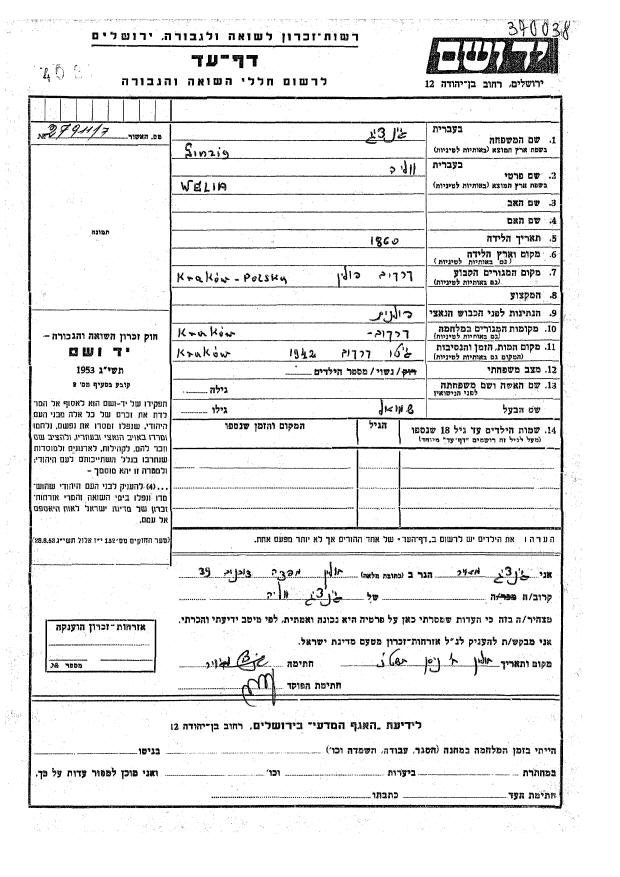 370038
רשות-זכרון לשואה ולגבורה, ירושלים
דף-עד
לרשום חללי השואה והגבורה
יד ושם
ירושלים, רחוב בן-יהודה 12
מס. האשור
№
תמונה
1. שם המשפחה בעברית
בשפת ארץ המוצא (באותיות לטיניות) Ginzig
2. שם פרטי בעברית
בשפת ארץ המוצא (באותיות לטיניות) WELIA
3. שם האב
4. שם האם
5. תאריך הלידה 1860
6. מקום וארץ הלידה
(גם באותיות לטיניות)
7. מקום המגורים הקבוע קרקוב פולין Kraków - Polska
(גם באותיות לטיניות)
8. המקצוע
9. הנתינות לפני הכבוש הנאצי פולנית
10. מקומות המגורים במלחמה קרקוב - Kraków
(גם באותיות לטיניות)
11. מקום המות, הזמן והנסיבות גיטו קרקוב 1942 Kraków
(המקום גם באותיות לטיניות)
12. מצב משפחתי רוק/נשוי/מספר הילדים
13. שם האשה ושם משפחתה לפני הנישואין גילה
שם הבעל שמואל גילו
14. שמות הילדים עד גיל 18 שנספו הגיל המקום והזמן שנספו
(מעל לגיל זה רושמים "דף-עד" מיוחד)
חוק זכרון השואה והגבורה –
יד ושם
תשי"ג 1953
קובע בסעיף מס' 2
תפקידו של יד-ושם הוא לאסוף אל המולדת את זכרם של כל אלה מבני העם היהודי, שנפלו ומסרו את נפשם, נלחמו ומרדו באויב הנאצי ובעוזריו, ולהציב שם וזכר להם, לקהילות, לארגונים ולמוסדות שנחרבו בגלל השתייכותם לעם היהודי; ולמטרה זו יהא מוסמך –
...(4) להעניק לבני העם היהודי שהושמדו ונפלו בימי השואה והמרי אזרחות-זכרון של מדינת ישראל לאות היאספם אל עמם.
(ספר החוקים מס' 132 י"ז אלול תשי"ג 28.8.53)
הערה: את הילדים יש לרשום ב"דף-העד" של אחד ההורים אך לא יותר מפעם אחת.
אני הגר ב (כתובת מלאה) חולון 39
קרוב/ה של
מצהיר/ה בזה כי העדות שמסרתי כאן על פרטיה היא נכונה ואמתית, לפי מיטב ידיעתי והכרתי.
אני מבקש/ת להעניק לנ"ל אזרחות-זכרון מטעם מדינת ישראל.
מקום ותאריך חולון ניסן חתימה
חתימת הפוקד
אזרחות-זכרון הוענקה
מספר №
לידיעת "האגף המדעי" בירושלים, רחוב בן-יהודה 12
הייתי בזמן המלחמה במחנה (הסגר, עבודה, השמדה וכו') בגיטו
במחתרת ביערות וכו' ואני מוכן למסור עדות על כך.
חתימת העד כתבתו